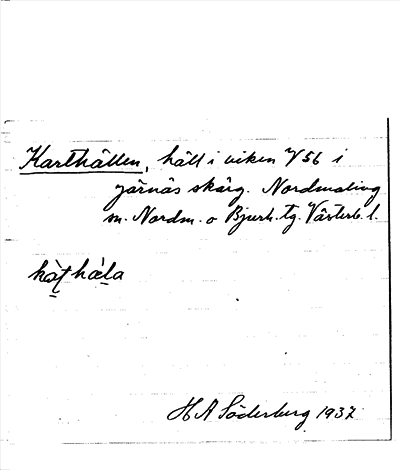 Karthällen, häll i viken V 56 i
Järnäs skärg. Nordmaling
sn. Nordm. o Bjurh. tg. Västerb. l.
kàṯ hàḻa
H A Söderberg 1937